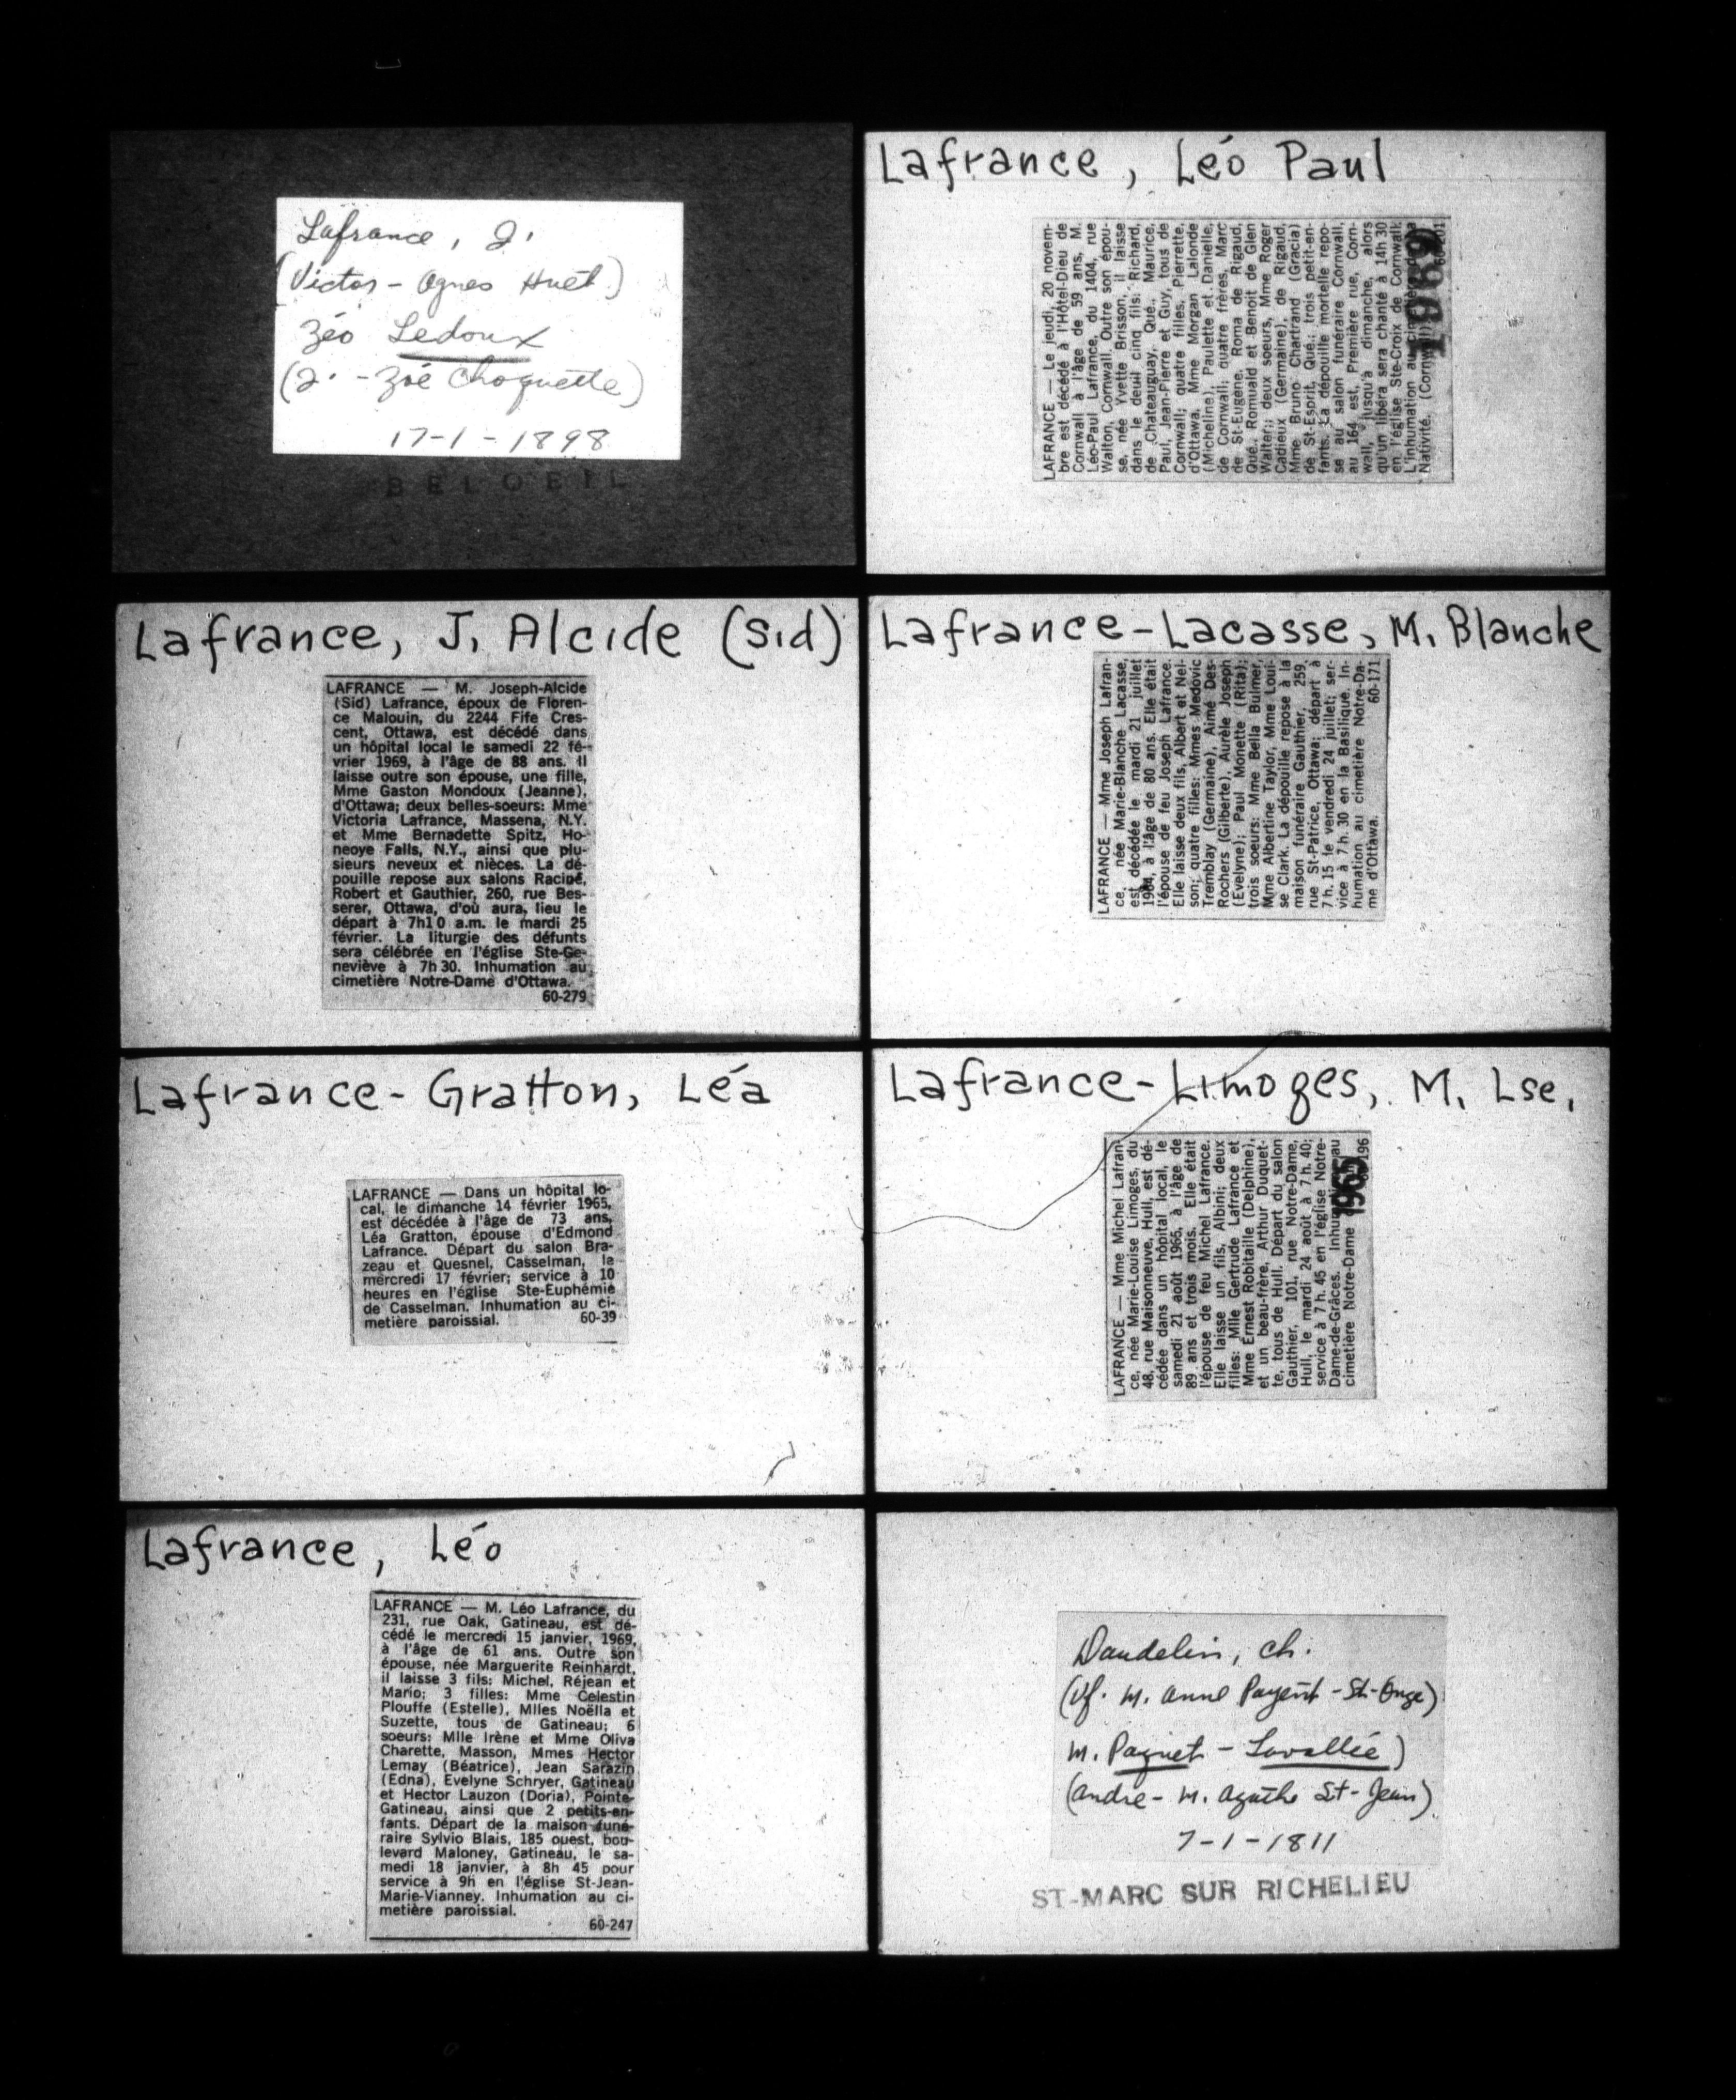 Lafrance, J.
(Victor - Agnes Huet)
Zéo Ledoux
(J. - Zoé Choquette)
17-1-1898
BELOEIL
Lafrance, Léo Paul
LAFRANCE — Le jeudi, 20 novem-
bre est décédé à l'Hôtel-Dieu de
Cornwall à l'âge de 59 ans, M.
Léo-Paul Lafrance, du 1404, rue
Walton, Cornwall. Outre son épou-
se, née Yvette Brisson, il laisse
dans le deuil cinq fils: Richard,
de Chateauguay, Qué., Maurice,
Paul, Jean-Pierre et Guy, tous de
Cornwall; quatre filles, Pierrette,
d'Ottawa, Mme Morgan Lalonde
(Micheline), Paulette et Danielle,
de Cornwall; quatre frères, Marc
de St-Eugène, Roma de Rigaud,
Qué., Romuald et Benoit de Glen
Walter;; deux soeurs, Mme Roger
Cadieux (Germaine), de Rigaud,
Mme Bruno Chartrand (Gracia)
de St-Esprit, Qué.; trois petit-en-
fants. La dépouille mortelle repo-
se au salon funéraire Cornwall,
au 164 est, Première rue, Corn-
wall, jusqu'à dimanche, alors
qu'un libéra sera chanté à 14h 30
en l'église Ste-Croix de Cornwall.
L'inhumation au cimetière de la
Nativité. (Cornwall)
1969
60-201
Lafrance, J. Alcide (Sid)
LAFRANCE — M. Joseph-Alcide
(Sid) Lafrance, époux de Floren-
ce Malouin, du 2244 Fife Cres-
cent, Ottawa, est décédé dans
un hôpital local le samedi 22 fé-
vrier 1969, à l'âge de 88 ans. Il
laisse outre son épouse, une fille,
Mme Gaston Mondoux (Jeanne),
d'Ottawa; deux belles-soeurs: Mme
Victoria Lafrance, Massena, N.Y.
et Mme Bernadette Spitz, Ho-
neoye Falls, N.Y., ainsi que plu-
sieurs neveux et nièces. La dé-
pouille repose aux salons Racine,
Robert et Gauthier, 260, rue Bes-
serer, Ottawa, d'où aura, lieu le
départ à 7h10 a.m. le mardi 25
février. La liturgie des défunts
sera célébrée en l'église Ste-Ge-
neviève à 7h 30. Inhumation au
cimetière Notre-Dame d'Ottawa.
60-279
Lafrance-Lacasse, M. Blanche
LAFRANCE — Mme Joseph Lafran-
ce, née Marie-Blanche Lacasse,
est décédée le mardi 21 juillet
1964, à l'âge de 80 ans. Elle était
l'épouse de feu Joseph Lafrance.
Elle laisse deux fils, Albert et Nel-
son; quatre filles: Mmes Medovic
Tremblay (Germaine), Aimé Des-
Rochers (Gilberte), Aurèle Joseph
(Evelyne); Paul Monette (Rita);
trois soeurs: Mme Bella Bulmer,
Mme Albertine Taylor, Mme Loui-
se Clark. La dépouille repose à la
maison funéraire Gauthier, 259,
rue St-Patrice, Ottawa; départ à
7 h. 15 le vendredi 24 juillet; ser-
vice à 7 h. 30 en la Basilique. In-
humation au cimetière Notre-Da-
me d'Ottawa. 60-171
Lafrance-Gratton, Léa
LAFRANCE — Dans un hôpital lo-
cal, le dimanche 14 février 1965,
est décédée à l'âge de 73 ans,
Léa Gratton, épouse d'Edmond
Lafrance. Départ du salon Bra-
zeau et Quesnel, Casselman, le
mercredi 17 février; service à 10
heures en l'église Ste-Euphémie
de Casselman. Inhumation au ci-
metière paroissial. 60-39
Lafrance-Limoges, M. Lse.
LAFRANCE — Mme Michel Lafran-
ce, née Marie-Louise Limoges, du
48, rue Maisonneuve, Hull, est dé-
cédée dans un hôpital local, le
samedi 21 août 1965, à l'âge de
89 ans et trois mois. Elle était
l'épouse de feu Michel Lafrance.
Elle laisse un fils, Albini; deux
filles: Mlle Gertrude Lafrance et
Mme Ernest Robitaille (Delphine),
et un beau-frère, Arthur Duquet-
te, tous de Hull. Départ du salon
Gauthier, 101, rue Notre-Dame,
Hull, le mardi 24 août à 7 h. 40;
service à 7 h. 45 en l'église Notre-
Dame-de-Grâces. Inhumation au
cimetière Notre-Dame
1965
196
Lafrance, Léo
LAFRANCE — M. Léo Lafrance, du
231, rue Oak, Gatineau, est dé-
cédé le mercredi 15 janvier, 1969,
à l'âge de 61 ans. Outre son
épouse, née Marguerite Reinhardt,
il laisse 3 fils: Michel, Réjean et
Mario; 3 filles: Mme Celestin
Plouffe (Estelle), Mlles Noëlla et
Suzette, tous de Gatineau; 6
soeurs: Mlle Irène et Mme Oliva
Charette, Masson, Mmes Hector
Lemay (Béatrice), Jean Sarazin
(Edna), Evelyne Schryer, Gatineau
et Hector Lauzon (Doria), Pointe-
Gatineau, ainsi que 2 petits-en-
fants. Départ de la maison funé-
raire Sylvio Blais, 185 ouest, bou-
levard Maloney, Gatineau, le sa-
medi 18 janvier, à 8h 45 pour
service à 9h en l'église St-Jean-
Marie-Vianney. Inhumation au ci-
metière paroissial.
60-247
Daudelin, Ch.
(Vf. M. Anne Payent - St-Onge)
M. Paquet - Lavallée)
(André - M. Agathe St-Jean)
7-1-1811
ST-MARC SUR RICHELIEU